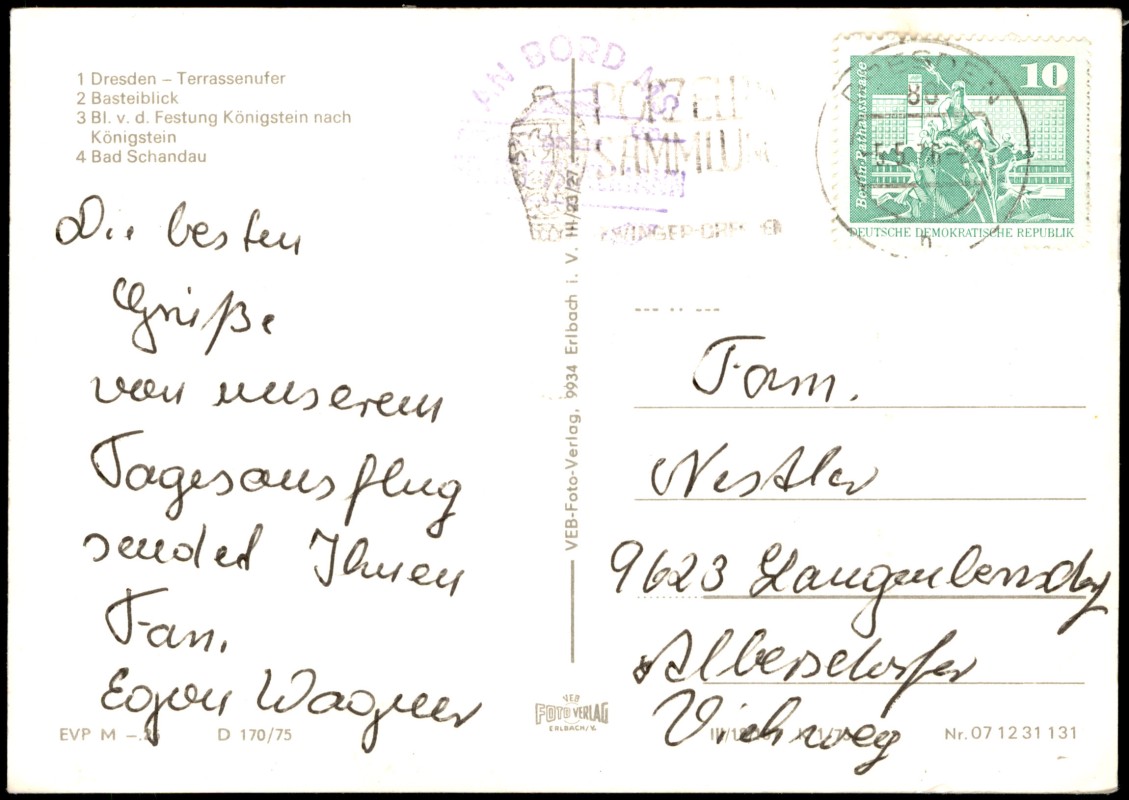 1 Dresden – Terrassenufer
2 Basteiblick
3 Bl. v. d. Festung Königstein nach
Königstein
4 Bad Schandau
AN BORD
PORZELL
SAMMLUN
ZWINGER-DRESDEN
DRESDEN
80
5.5.76-22
h
10
Berlin, Rathausstraße
DEUTSCHE DEMOKRATISCHE REPUBLIK
Die besten
Grüße
von unserem
Tagesausflug
sendet Ihnen
Fam.
Egon Wagner
VEB-Foto-Verlag, 9934 Erlbach i. V. III/23/27
Fam.
Nestler
9623 Langenbernsdorf
Albersdorfer
Viehweg
EVP M –.25
D 170/75
VEB
FOTO VERLAG
ERLBACH/V.
Nr. 07 12 31 131